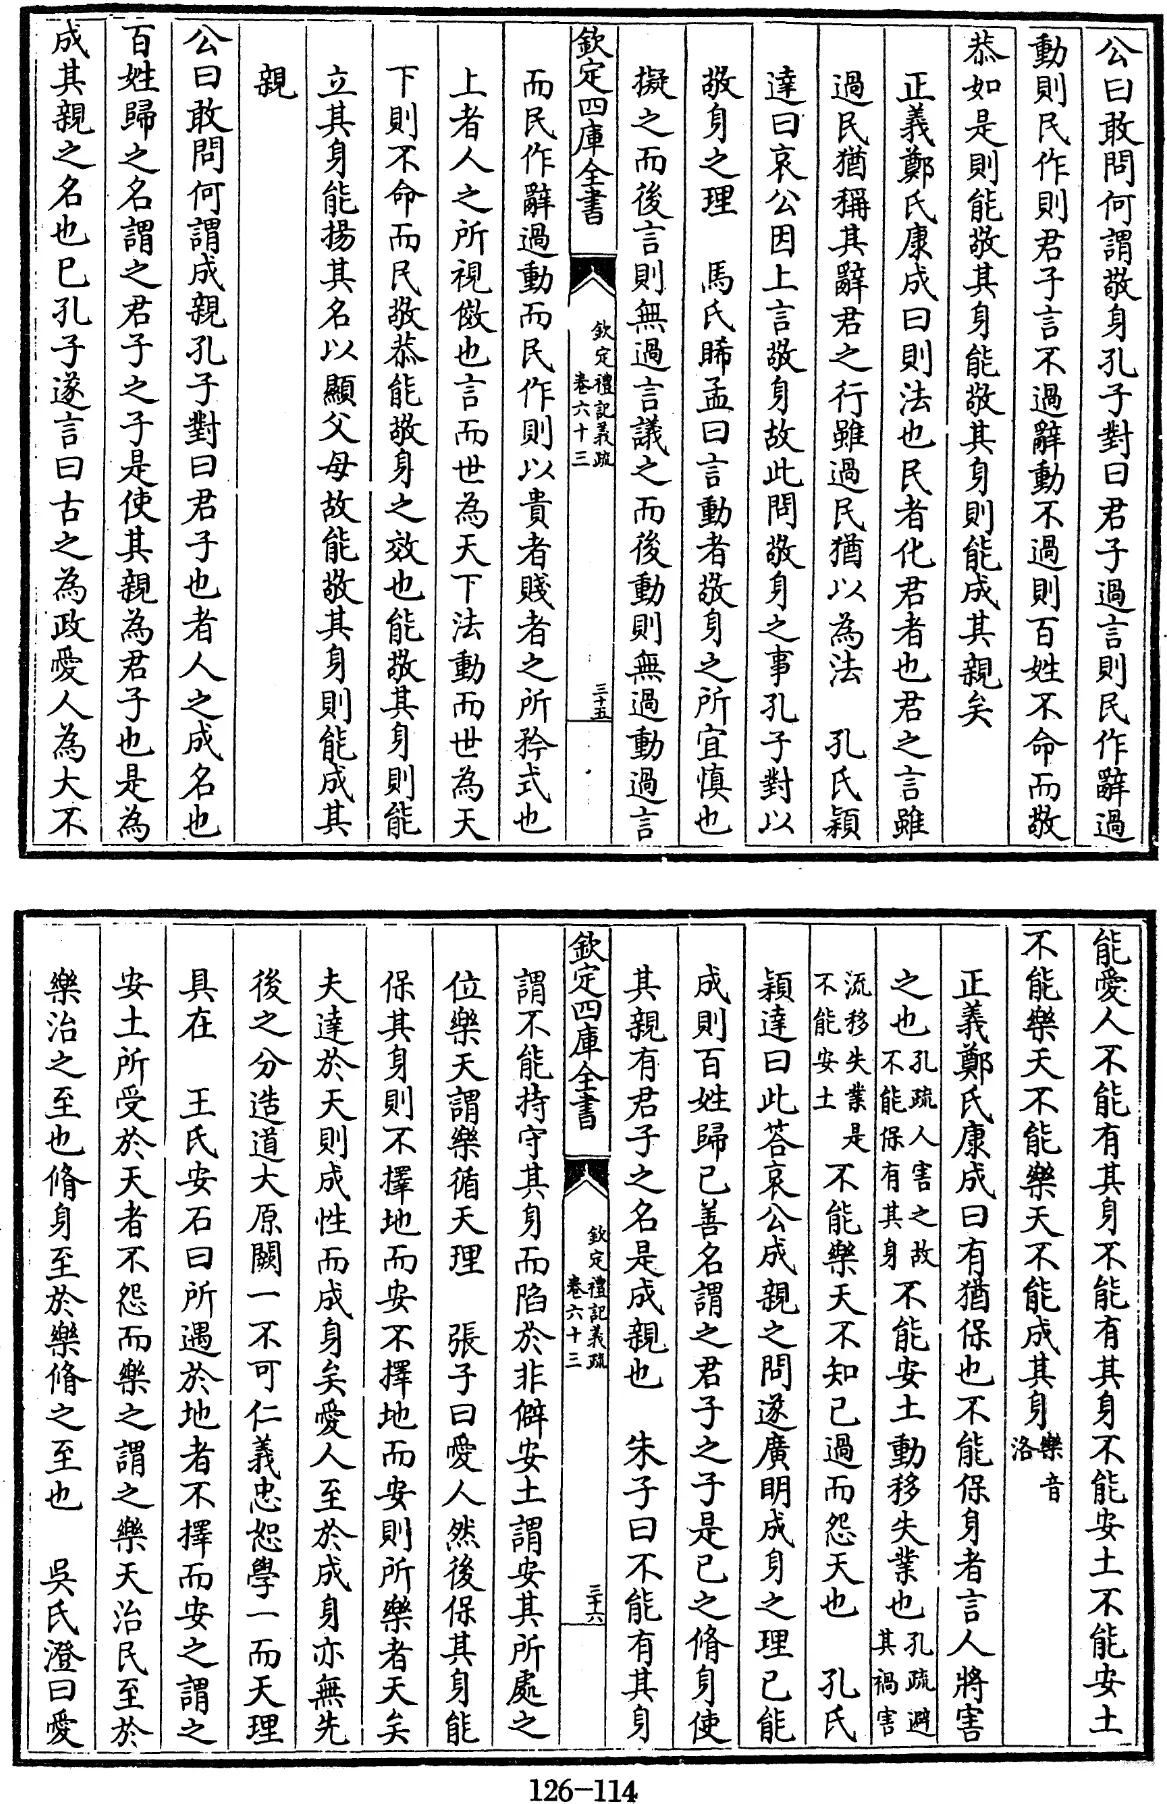 公曰敢問何謂敬身孔子對曰君子過言則民作辭過
動則民作則君子言不過辭動不過則百姓不命而敬
恭如是則能敬其身能敬其身則能成其親矣
正義鄭氏康成曰則法也民者化君者也君之言雖
過民猶稱其辭君之行雖過民猶以為法　孔氏穎
達曰哀公因上言敬身故此問敬身之事孔子對以
敬身之理　馬氏睎孟曰言動者敬身之所宜慎也
擬之而後言則無過言議之而後動則無過動過言
欽定四庫全書
欽定禮記義疏
卷六十三
三十五
而民作辭過動而民作則以貴者賤者之所矜式也
上者人之所視傚也言而世為天下法動而世為天
下則不命而民敬恭能敬身之效也能敬其身則能
立其身能揚其名以顯父母故能敬其身則能成其
親
公曰敢問何謂成親孔子對曰君子也者人之成名也
百姓歸之名謂之君子之子是使其親為君子也是為
成其親之名也已孔子遂言曰古之為政愛人為大不
能愛人不能有其身不能有其身不能安土不能安土
不能樂天不能樂天不能成其身樂音洛
正義鄭氏康成曰有猶保也不能保身者言人將害
之也孔疏人害之故不能保有其身不能安土動移失業也孔疏避其禍害
流移失業是不能安土不能樂天不知已過而怨天也　孔氏
穎達曰此答哀公成親之問遂廣明成身之理已能
成則百姓歸已善名謂之君子之子是已之脩身使
其親有君子之名是成親也　朱子曰不能有其身
欽定四庫全書
欽定禮記義疏
卷六十三
三十六
謂不能持守其身而陷於非僻安土謂安其所處之
位樂天謂樂循天理　張子曰愛人然後保其身能
保其身則不擇地而安不擇地而安則所樂者天矣
夫達於天則成性而成身矣愛人至於成身亦無先
後之分造道大原闕一不可仁義忠恕學一而天理
具在　王氏安石曰所遇於地者不擇而安之謂之
安土所受於天者不怨而樂之謂之樂天治民至於
樂治之至也脩身至於樂脩之至也　吳氏澄曰愛
126-114